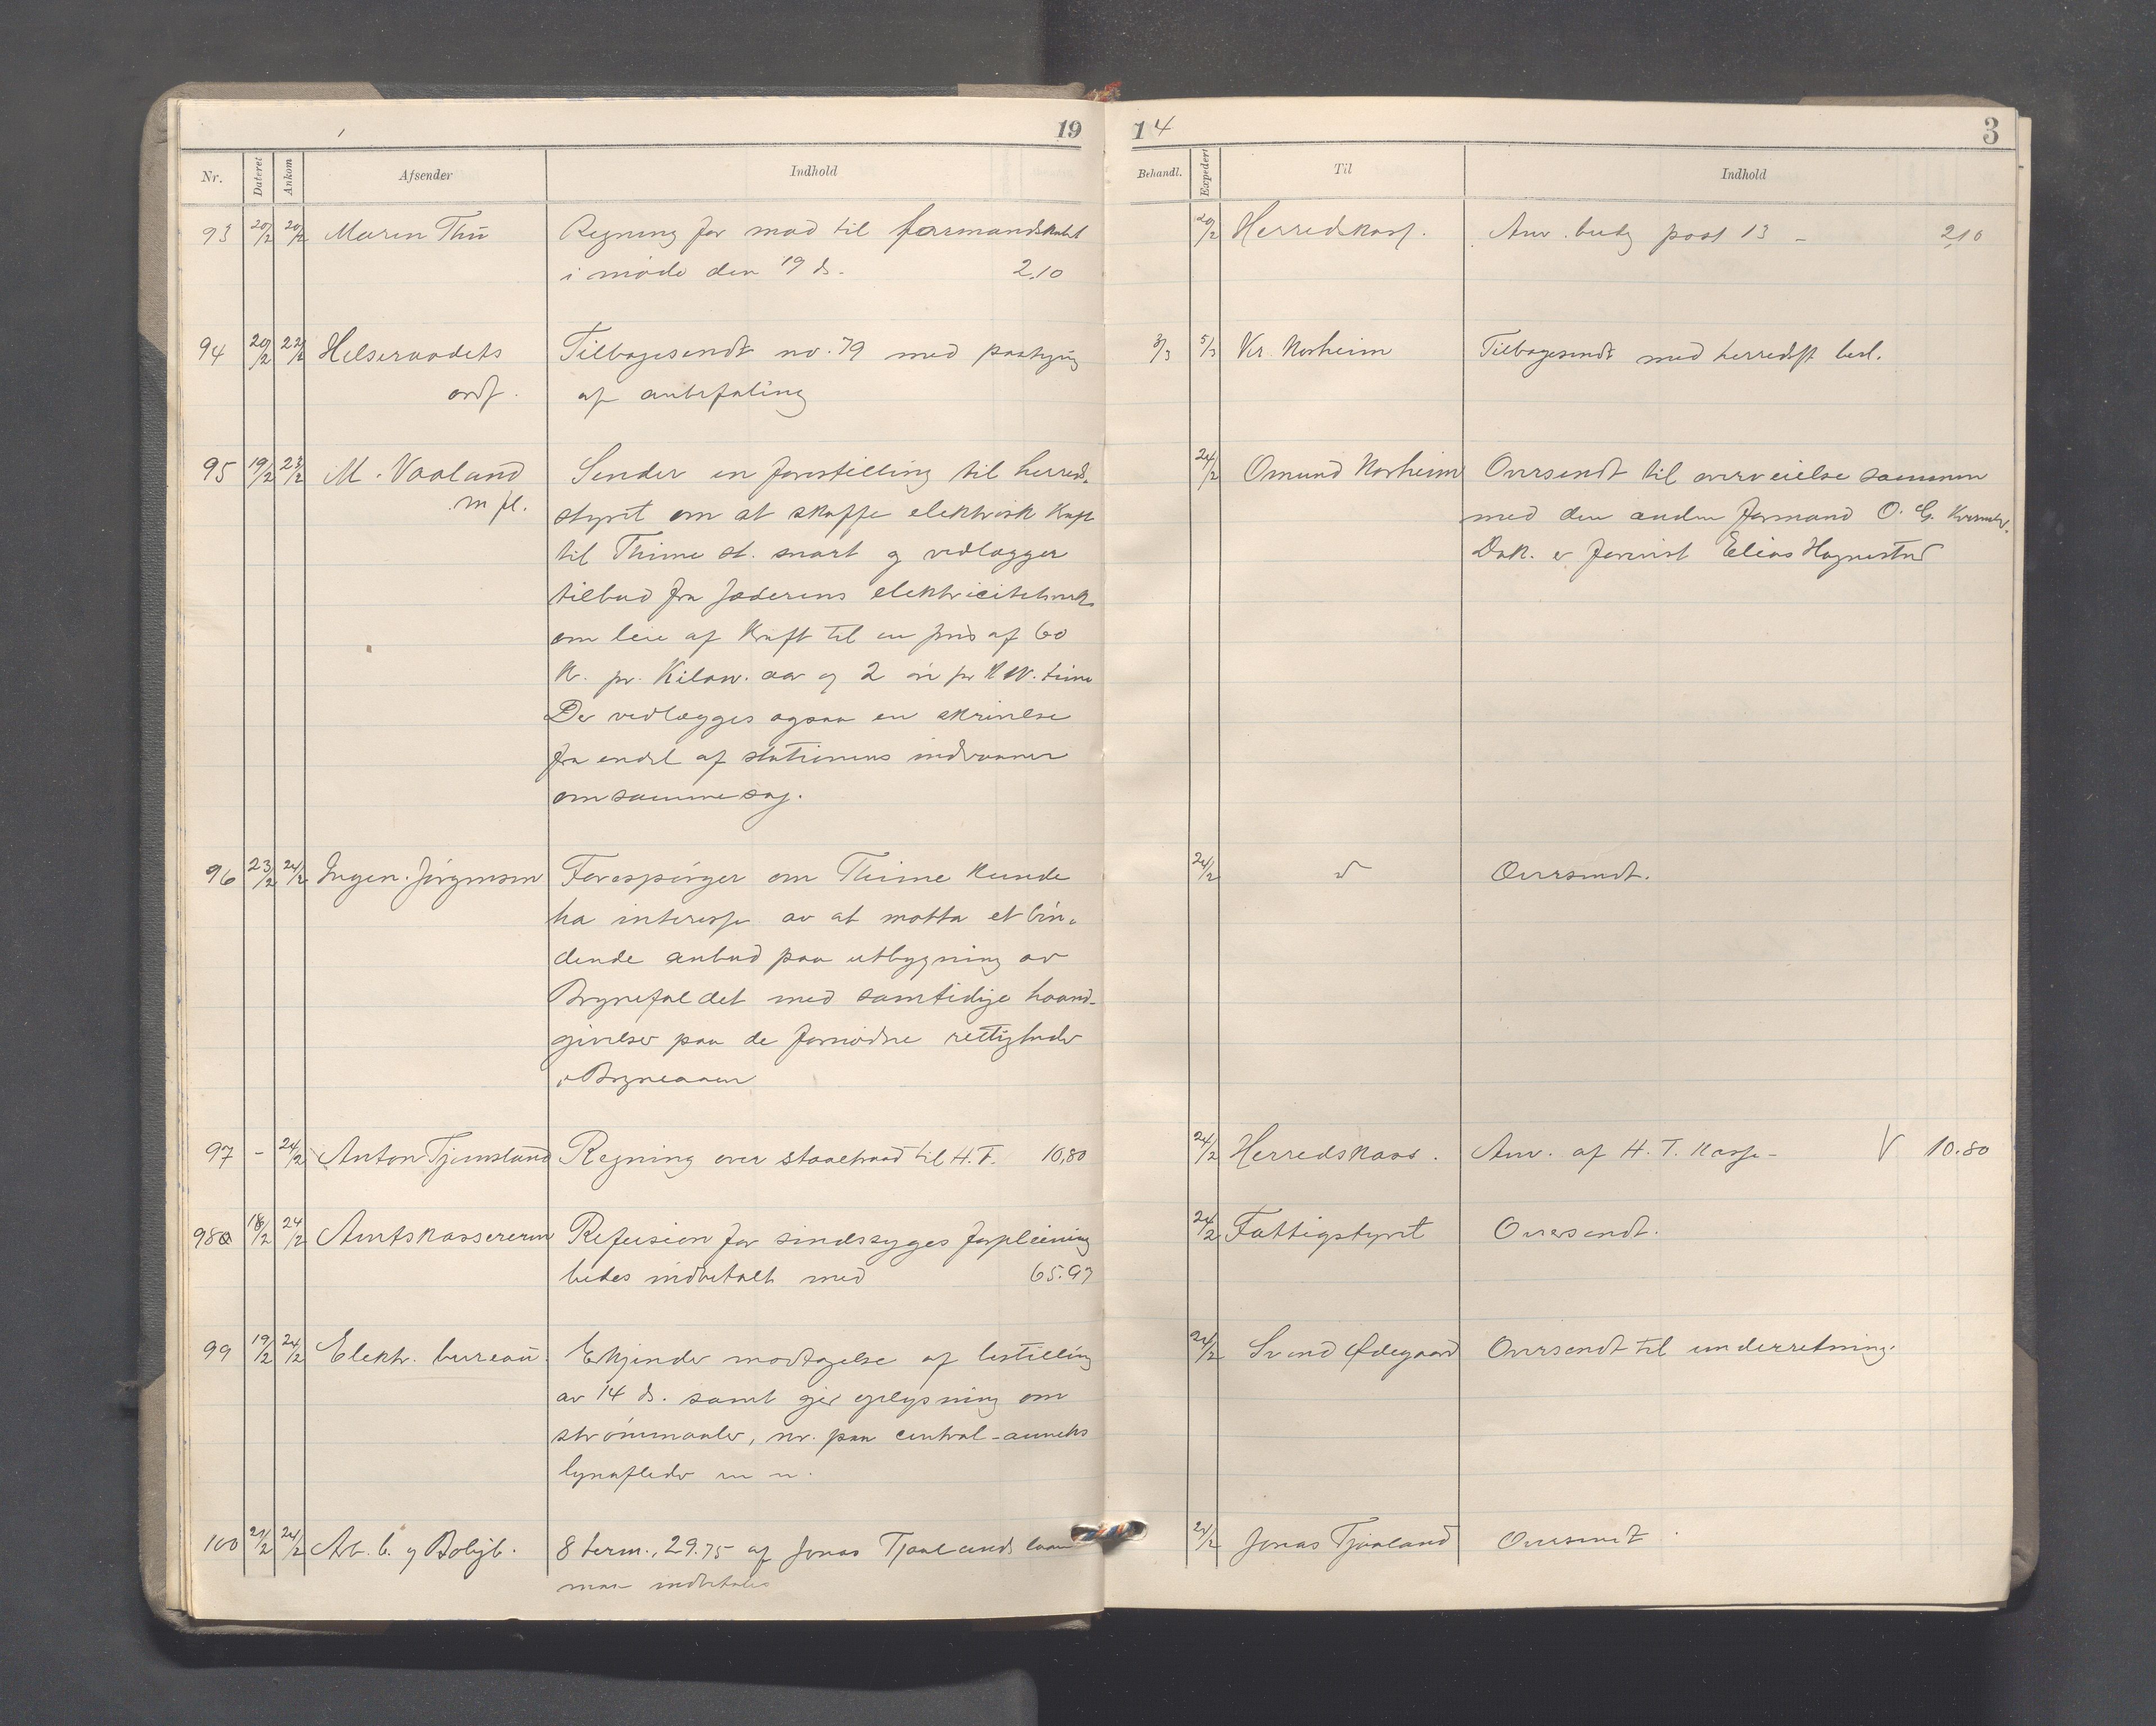 19
14
3
Nr. Dateret Ankom Afsender Indhold
Behandl. Expedert Til Indhold
93 20/2 20/2 Maren Thu Regning for mad til formandskabet
i møde den 19 ds. 2.10
20/2 Herredskass. Anv. budg post 13 – 2,10
94 20/2 22/2 Helseraadets Tilbagesendt no. 79 med paategn
ordf. af anbefaling
3/3 5/3 Kr. Norheim Tilbagesendt med herredsst besl.
95 19/2 23/2 M. Vaaland Sender en forestilling til herreds-
m fl. styret om at skaffe elektrisk kraft
til Thime st. snart og vedlægger
tilbud fra Jæderens elektricitetsverk
om leie af kraft til en pris af 60
kr. pr. Kilow. aar og 2 øre pr KW. time
Der vedlægges ogsaa en skrivelse
fra endel af stationens indvaanere
om samme sag.
24/2 Omund Norheim Oversendt til overveielse sammen
med den anden formand O. G.
Dok. er forevist Elias Hognestad
96 23/2 24/2 Ingen. Jørgensen Forespørger om Thime kunde
ha interesse av at motta et bin-
dende anbud paa utbygning av
Brynefaldet med samtidige haand-
givelser paa de fornødne rettigheder
i Bryneaaen
24/2 d Oversendt.
97 – 24/2 Anton Tjemsland Regning over staaltraad til H.T. 10,80
24/2 Herredskass. Anv. af H. T. Kasse – V 10.80
98a 18/2 24/2 Amtskassereren Refusion for sindssyges forpleining
bedes indbetalt med 65.97
24/2 Fattigstyret Oversendt.
99 19/2 24/2 Elektr. bureau. Erkjender modtagelse af bestilling
av 14 ds. samt gir oplysning om
strømmaaler, nr. paa central-anneks
lynafleder m m.
24/2 Svend Ødegaard Oversendt til underretning.
100 21/2 24/2 Arb. b. og Boligb. 8 term., 29.75 af Jonas Tjaalands laan
maa indbetales
24/2 Jonas Tjaaland Oversendt